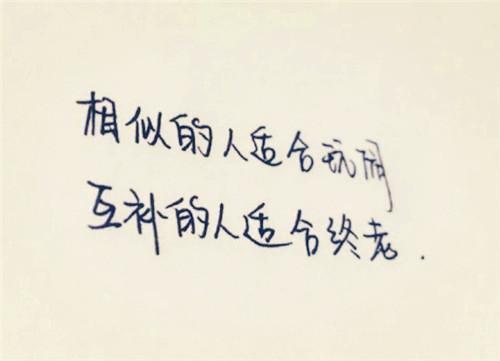 相似的人适合玩闹
互补的人适合终老.